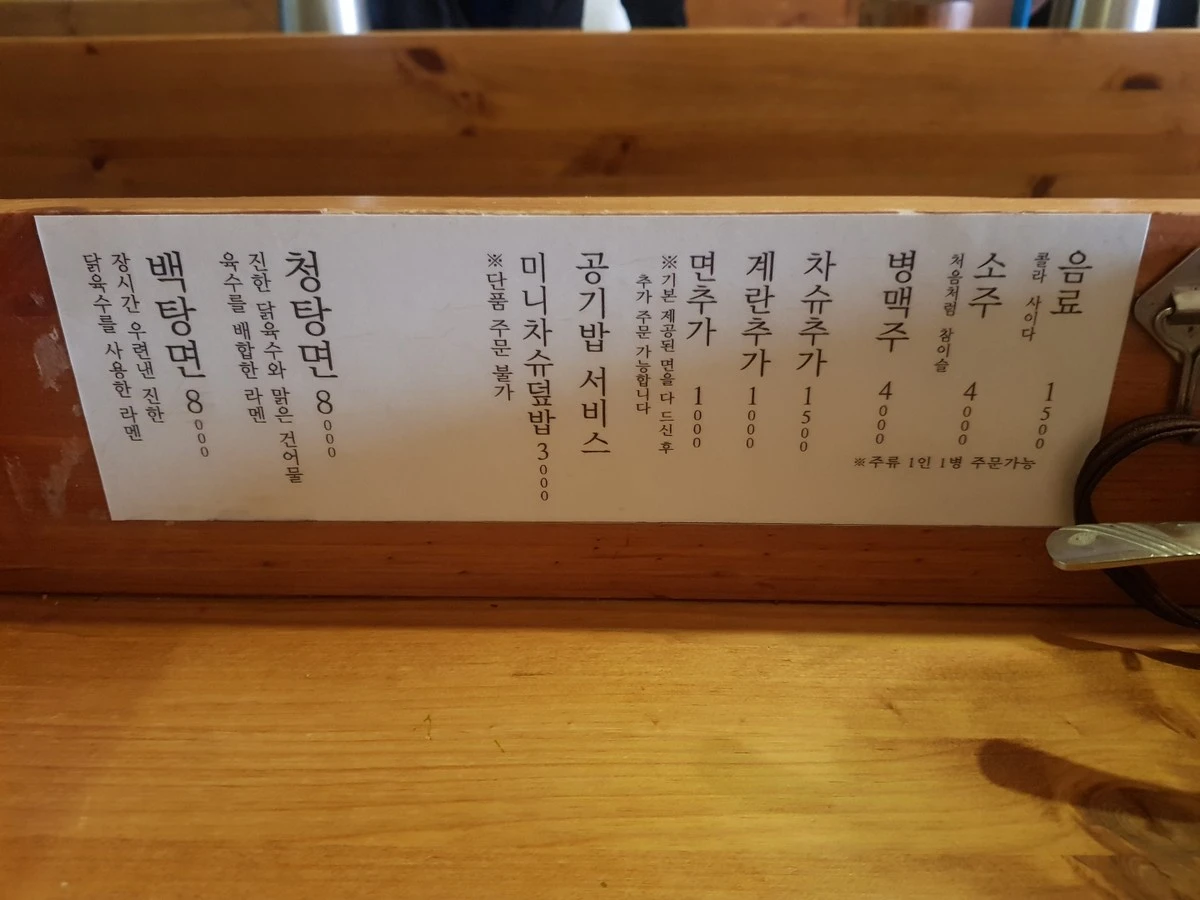 음료 1500
콜라 사이다
소주 4000
처음처럼 참이슬
병맥주 4000
※주류 1인 1병 주문가능
차슈추가 1500
계란추가 1000
면추가 1000
※기본 제공된 면을 다 드신 후
추가 주문 가능합니다
공기밥 서비스
미니차슈덮밥 3000
※단품 주문 불가
청탕면 8000
진한 닭육수와 맑은 건어물
육수를 배합한 라멘
백탕면 8000
장시간 우련낸 진한
닭육수를 사용한 라멘